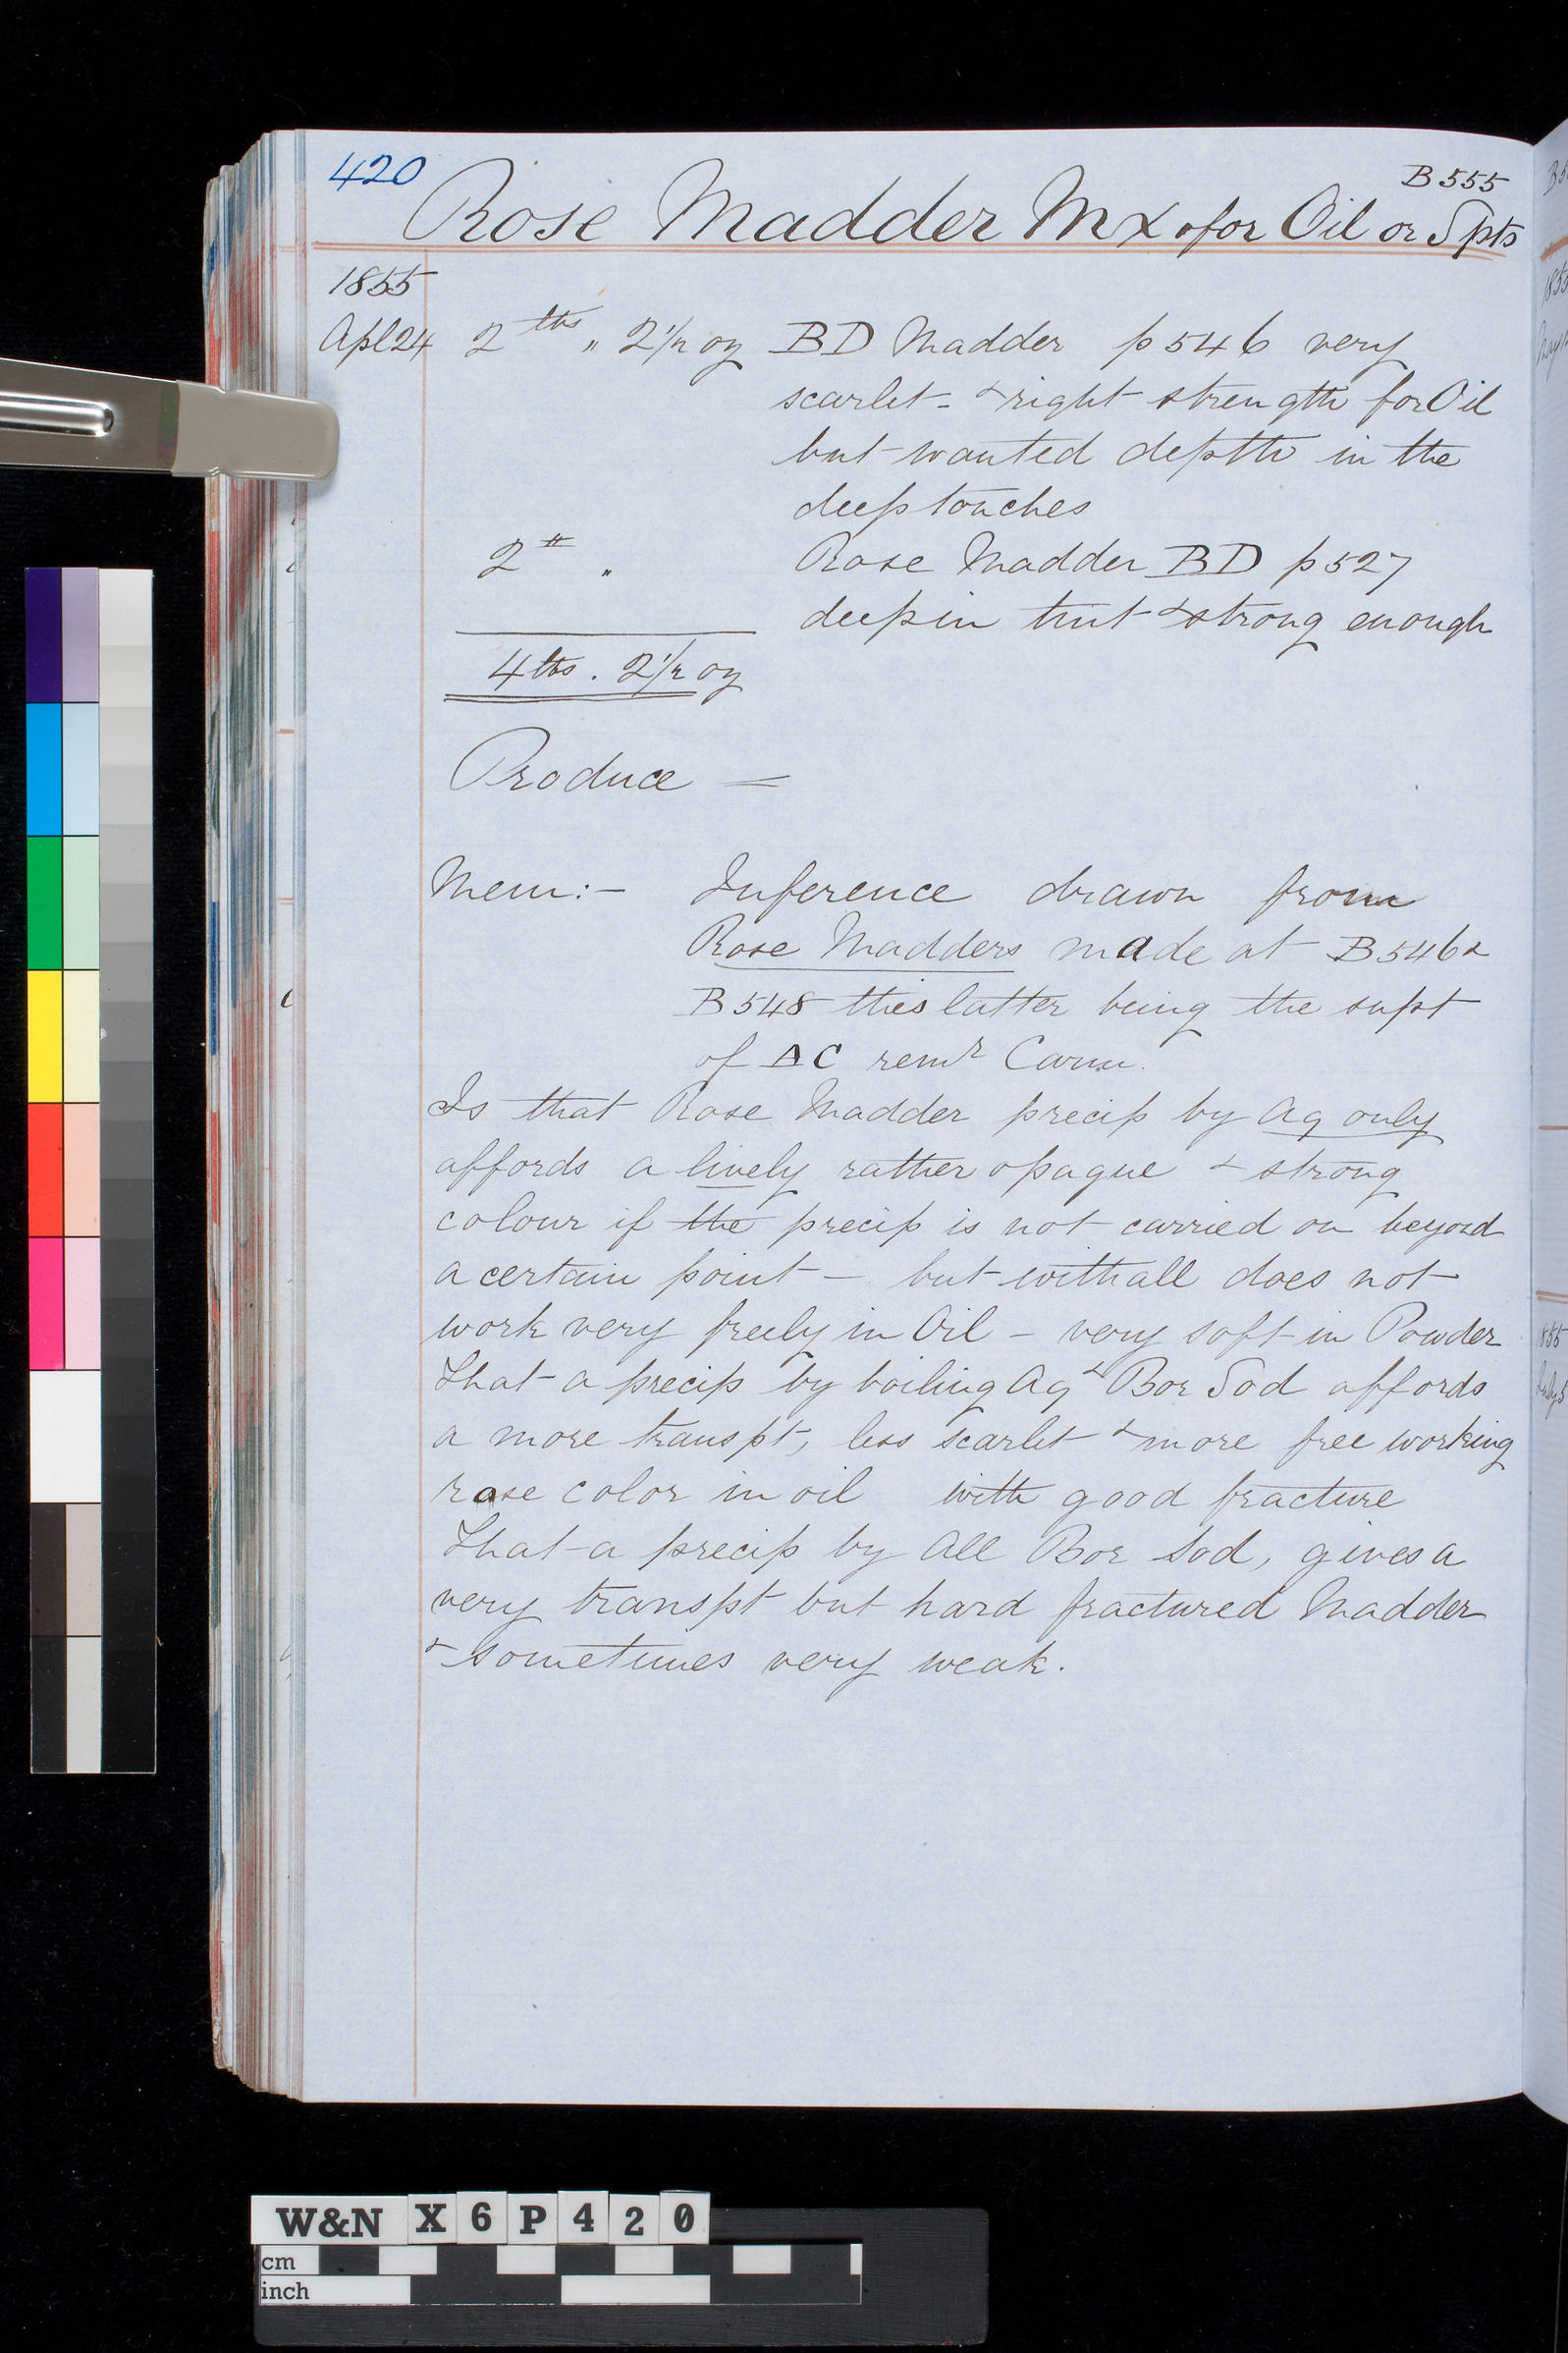 420
B 555
Rose Madder Mx for Oil or Spts
1855
Apl 24 2 lbs „ 2 1/2 oz BD Madder p 546 very
scarlet - & right strength for Oil
but wanted depth in the
deep touches
2 lb „ Rose Madder BD p 527
deep in tint & strong enough
4 lbs . 2 1/2 oz
Produce =
Mem:- Inference drawn from
Rose Madders made at B 546 &
B 548 this latter being the supt
of DC remr Carm.
Is that Rose Madder precip by Aq only
affords a lively rather opaque & strong
colour if the precip is not carried on beyond
a certain point - but withall does not
work very freely in Oil - very soft in Powder
That a precip by boiling Aq & Bor Sod affords
a more transpt, less scarlet & more free working
rose color in oil with good fracture
That a precip by All Bor Sod, gives a
very transpt but hard fractured Madder
& sometimes very weak.
W&N X6P420
cm
inch